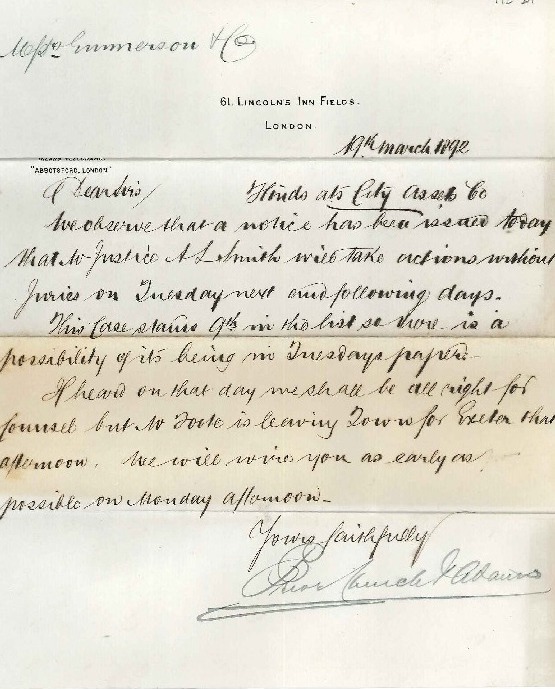 Messrs Emmerson & Co
61. Lincoln's Inn Fields.
London.
19th March 1892
"Abbotsford, London"
Dear Sirs/ Hinds ats City Assets Co
We observe that a notice has been issued today
that Mr Justice A L Smith will take actions without
Juries on Tuesday next and following days.
This Case stands 9th in the list so there is a
possibility of its being in Tuesdays paper.
If heard on that day we shall be all right for
Counsel but Mr Foote is leaving Town for Exeter that
afternoon. We will wire you as early as
possible on Monday afternoon.
Yours faithfully
Prior Church & Adams